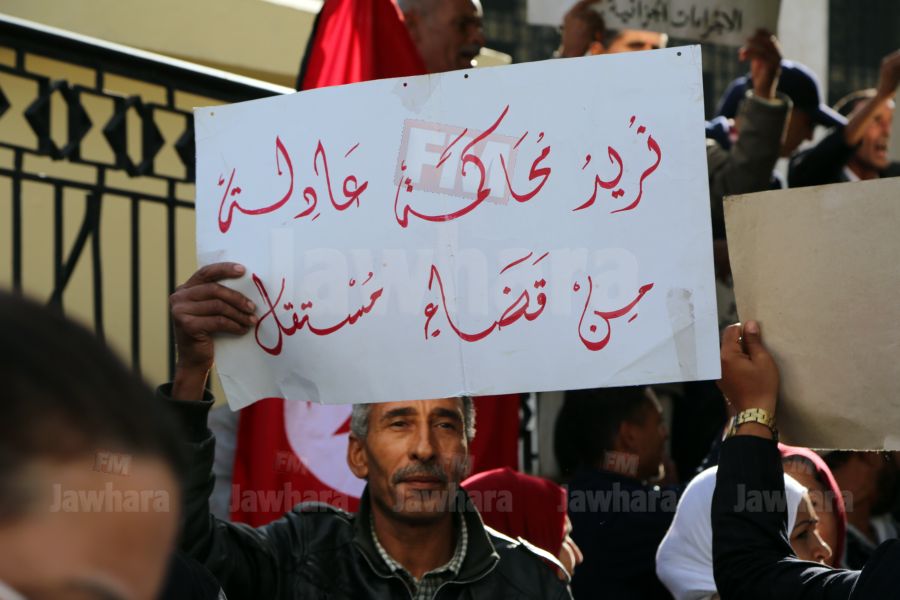 الاجراءات الجزائية
نُريدُ مُحَاكمَةً عَادِلةً
مِنْ قَضَاءٍ مُسْتقلّ
FM
Jawhara
FM
Jawhara
FM
Jawhara
FM
Jawhara
FM
Jawhara
FM
Jawhara